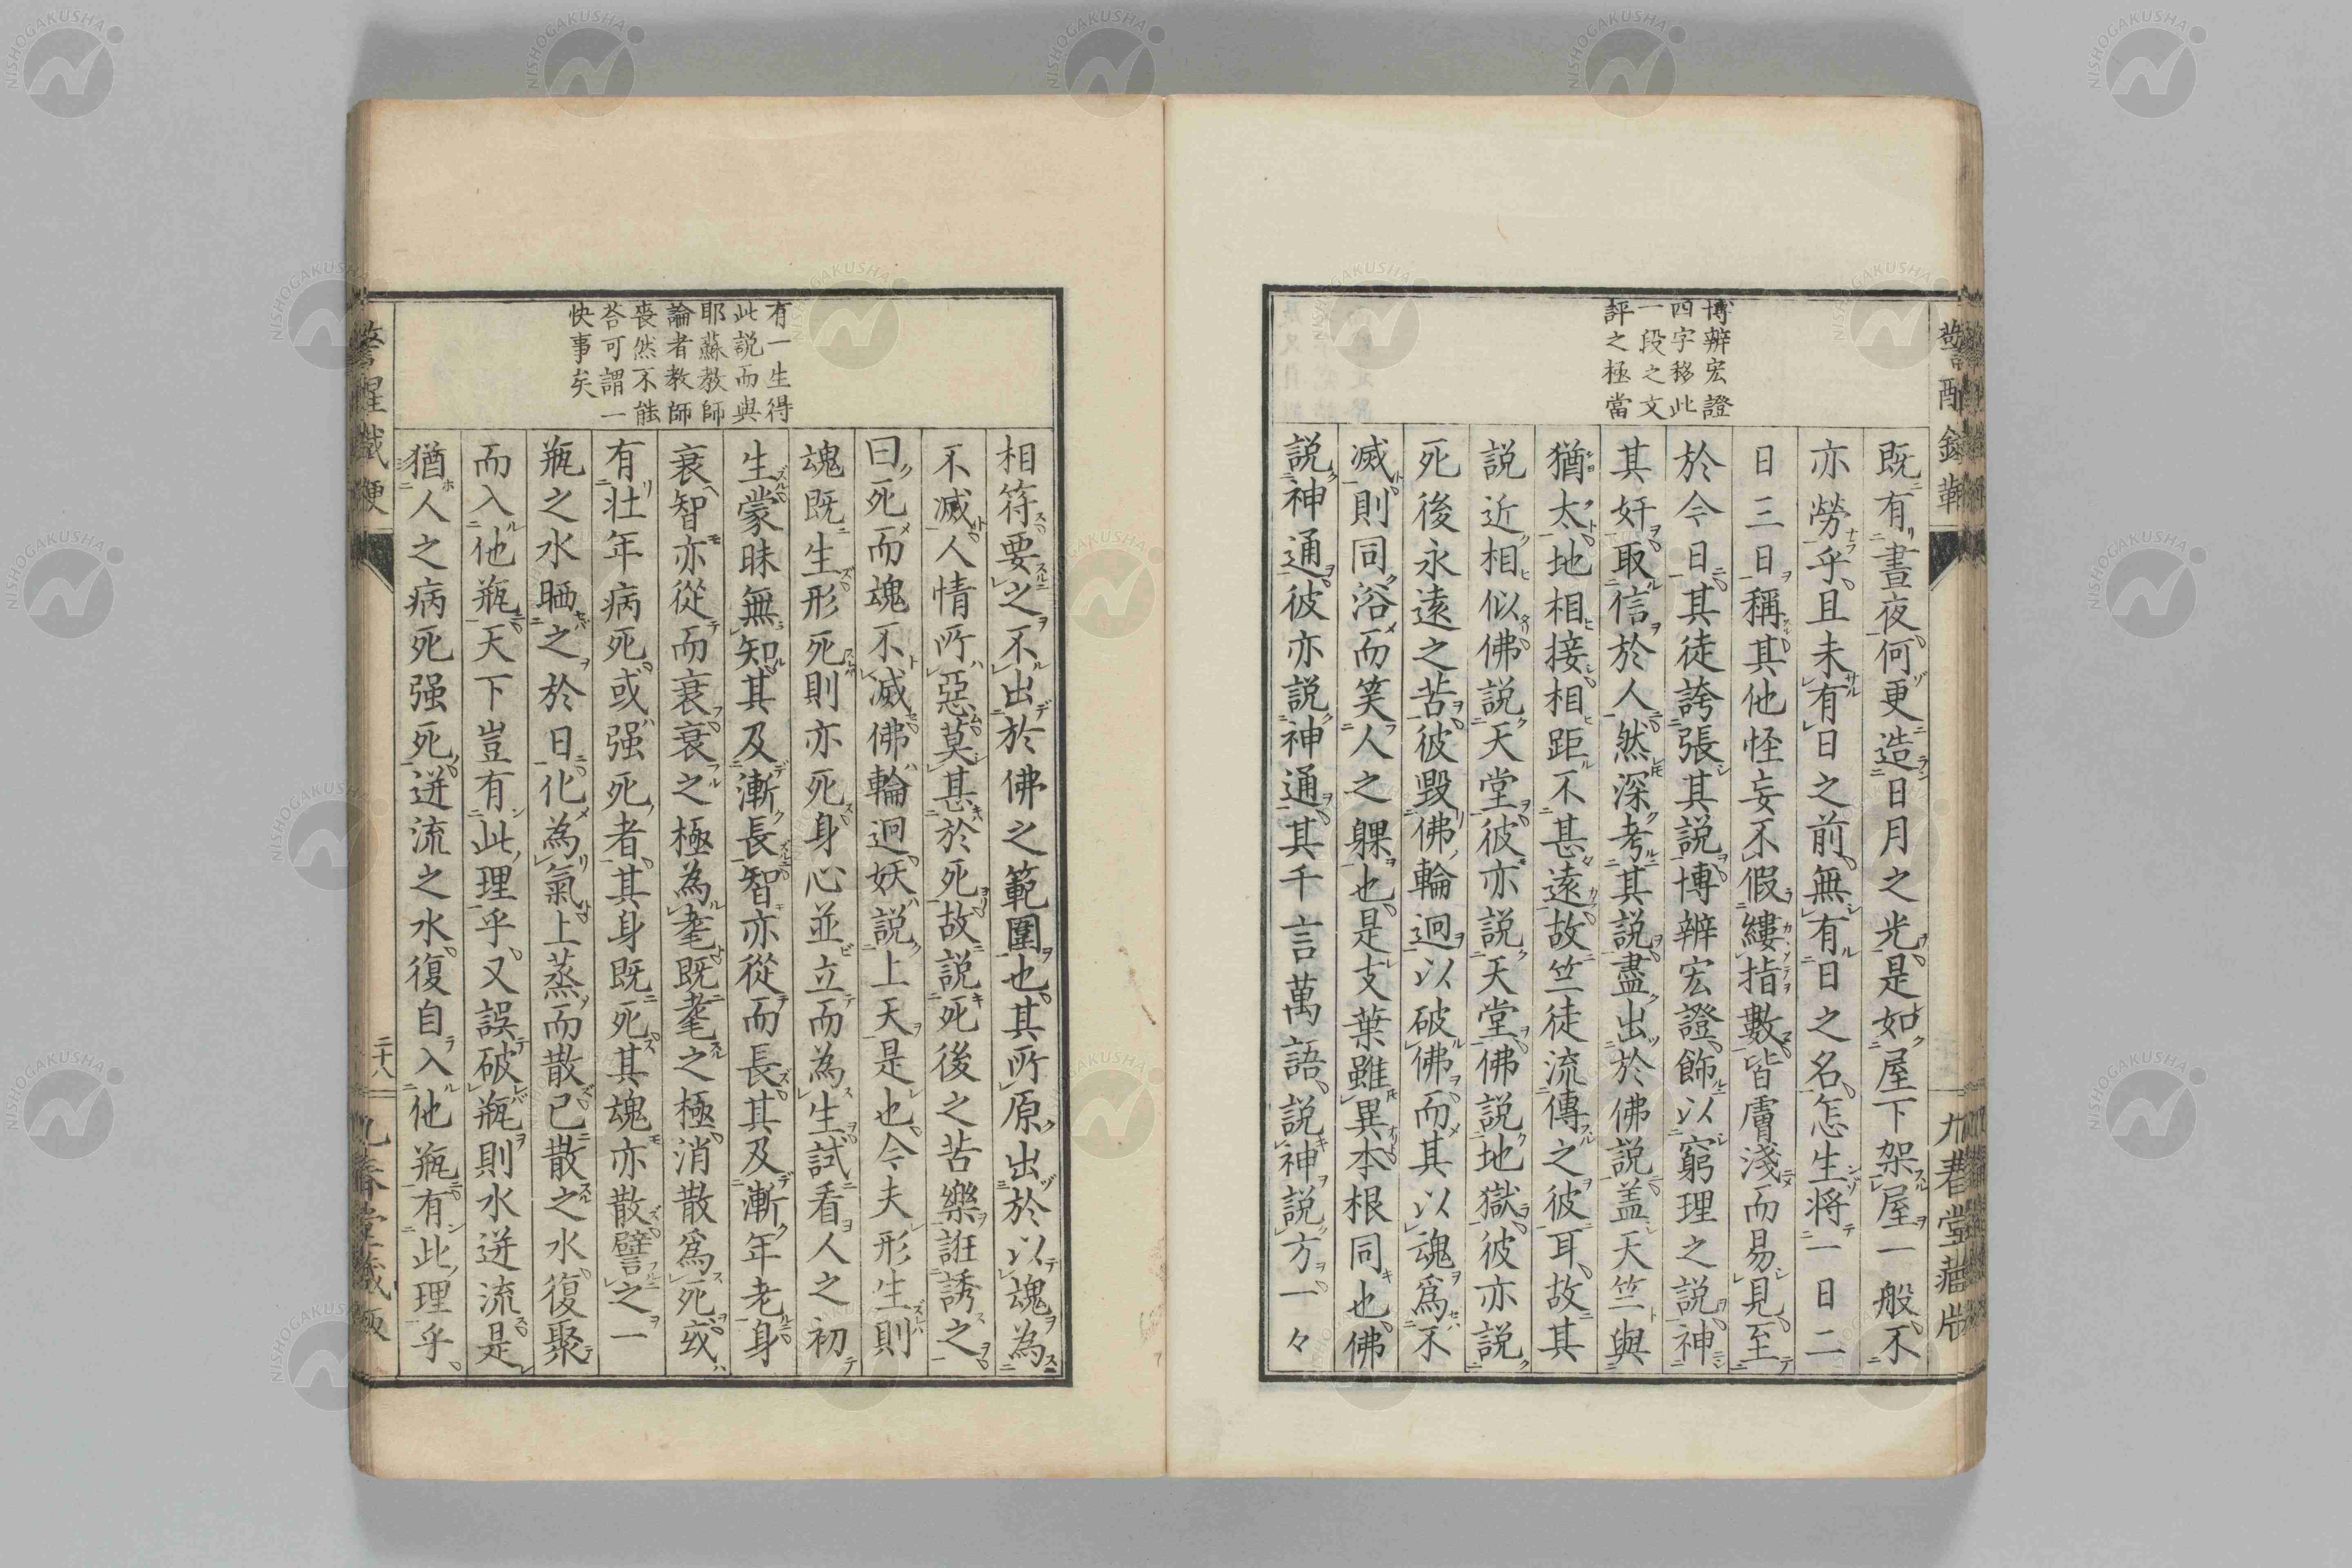 博辨宏證
四字移此
一段之文
評之極當
既有晝夜何更造日月之光是如屋下架屋一般不
亦勞乎且未有日之前無有日之名怎生将一日二
日三日稱其他怪妄不假縷指數皆膚淺而易見至
於今日其徒誇張其説博辨宏證飾以窮理之説神
其奸取信於人然深考其説盡出於佛説盖天竺與
猶太地相接相距不甚遠故竺徒流傳之彼耳故其
説近相似佛説天堂彼亦説天堂佛説地獄彼亦説
死後永遠之苦彼毀佛輪迴以破佛而其以魂爲不
滅則同浴而笑人之躶也是支葉雖異本根同也佛
説神通彼亦説神通其千言萬語説神説方一々
有一生得
此説而與
耶蘇教師
論者教師
喪然不能
荅可謂一
快事矣
相符要之不出於佛之範圍也其所原出於以魂為
不滅人情所惡莫甚於死故説死後之苦樂誑誘之
曰死而魂不滅佛輪迴妖説上天是也今夫形生則
魂既生形死則亦死身心並立而為生試看人之初
生蒙昧無知其及漸長智亦從而長其及漸年老身
衰智亦從而衰衰之極為耄既耄之極消散爲死或
有壮年病死或强死者其身既死其魂亦散譬之一
瓶之水晒之於日化為氣上蒸而散已散之水復聚
而入他瓶天下豈有此理乎又誤破瓶則水迸流是
猶人之病死强死迸流之水復自入他瓶有此理乎
二十八
NISHOGAKUSHA